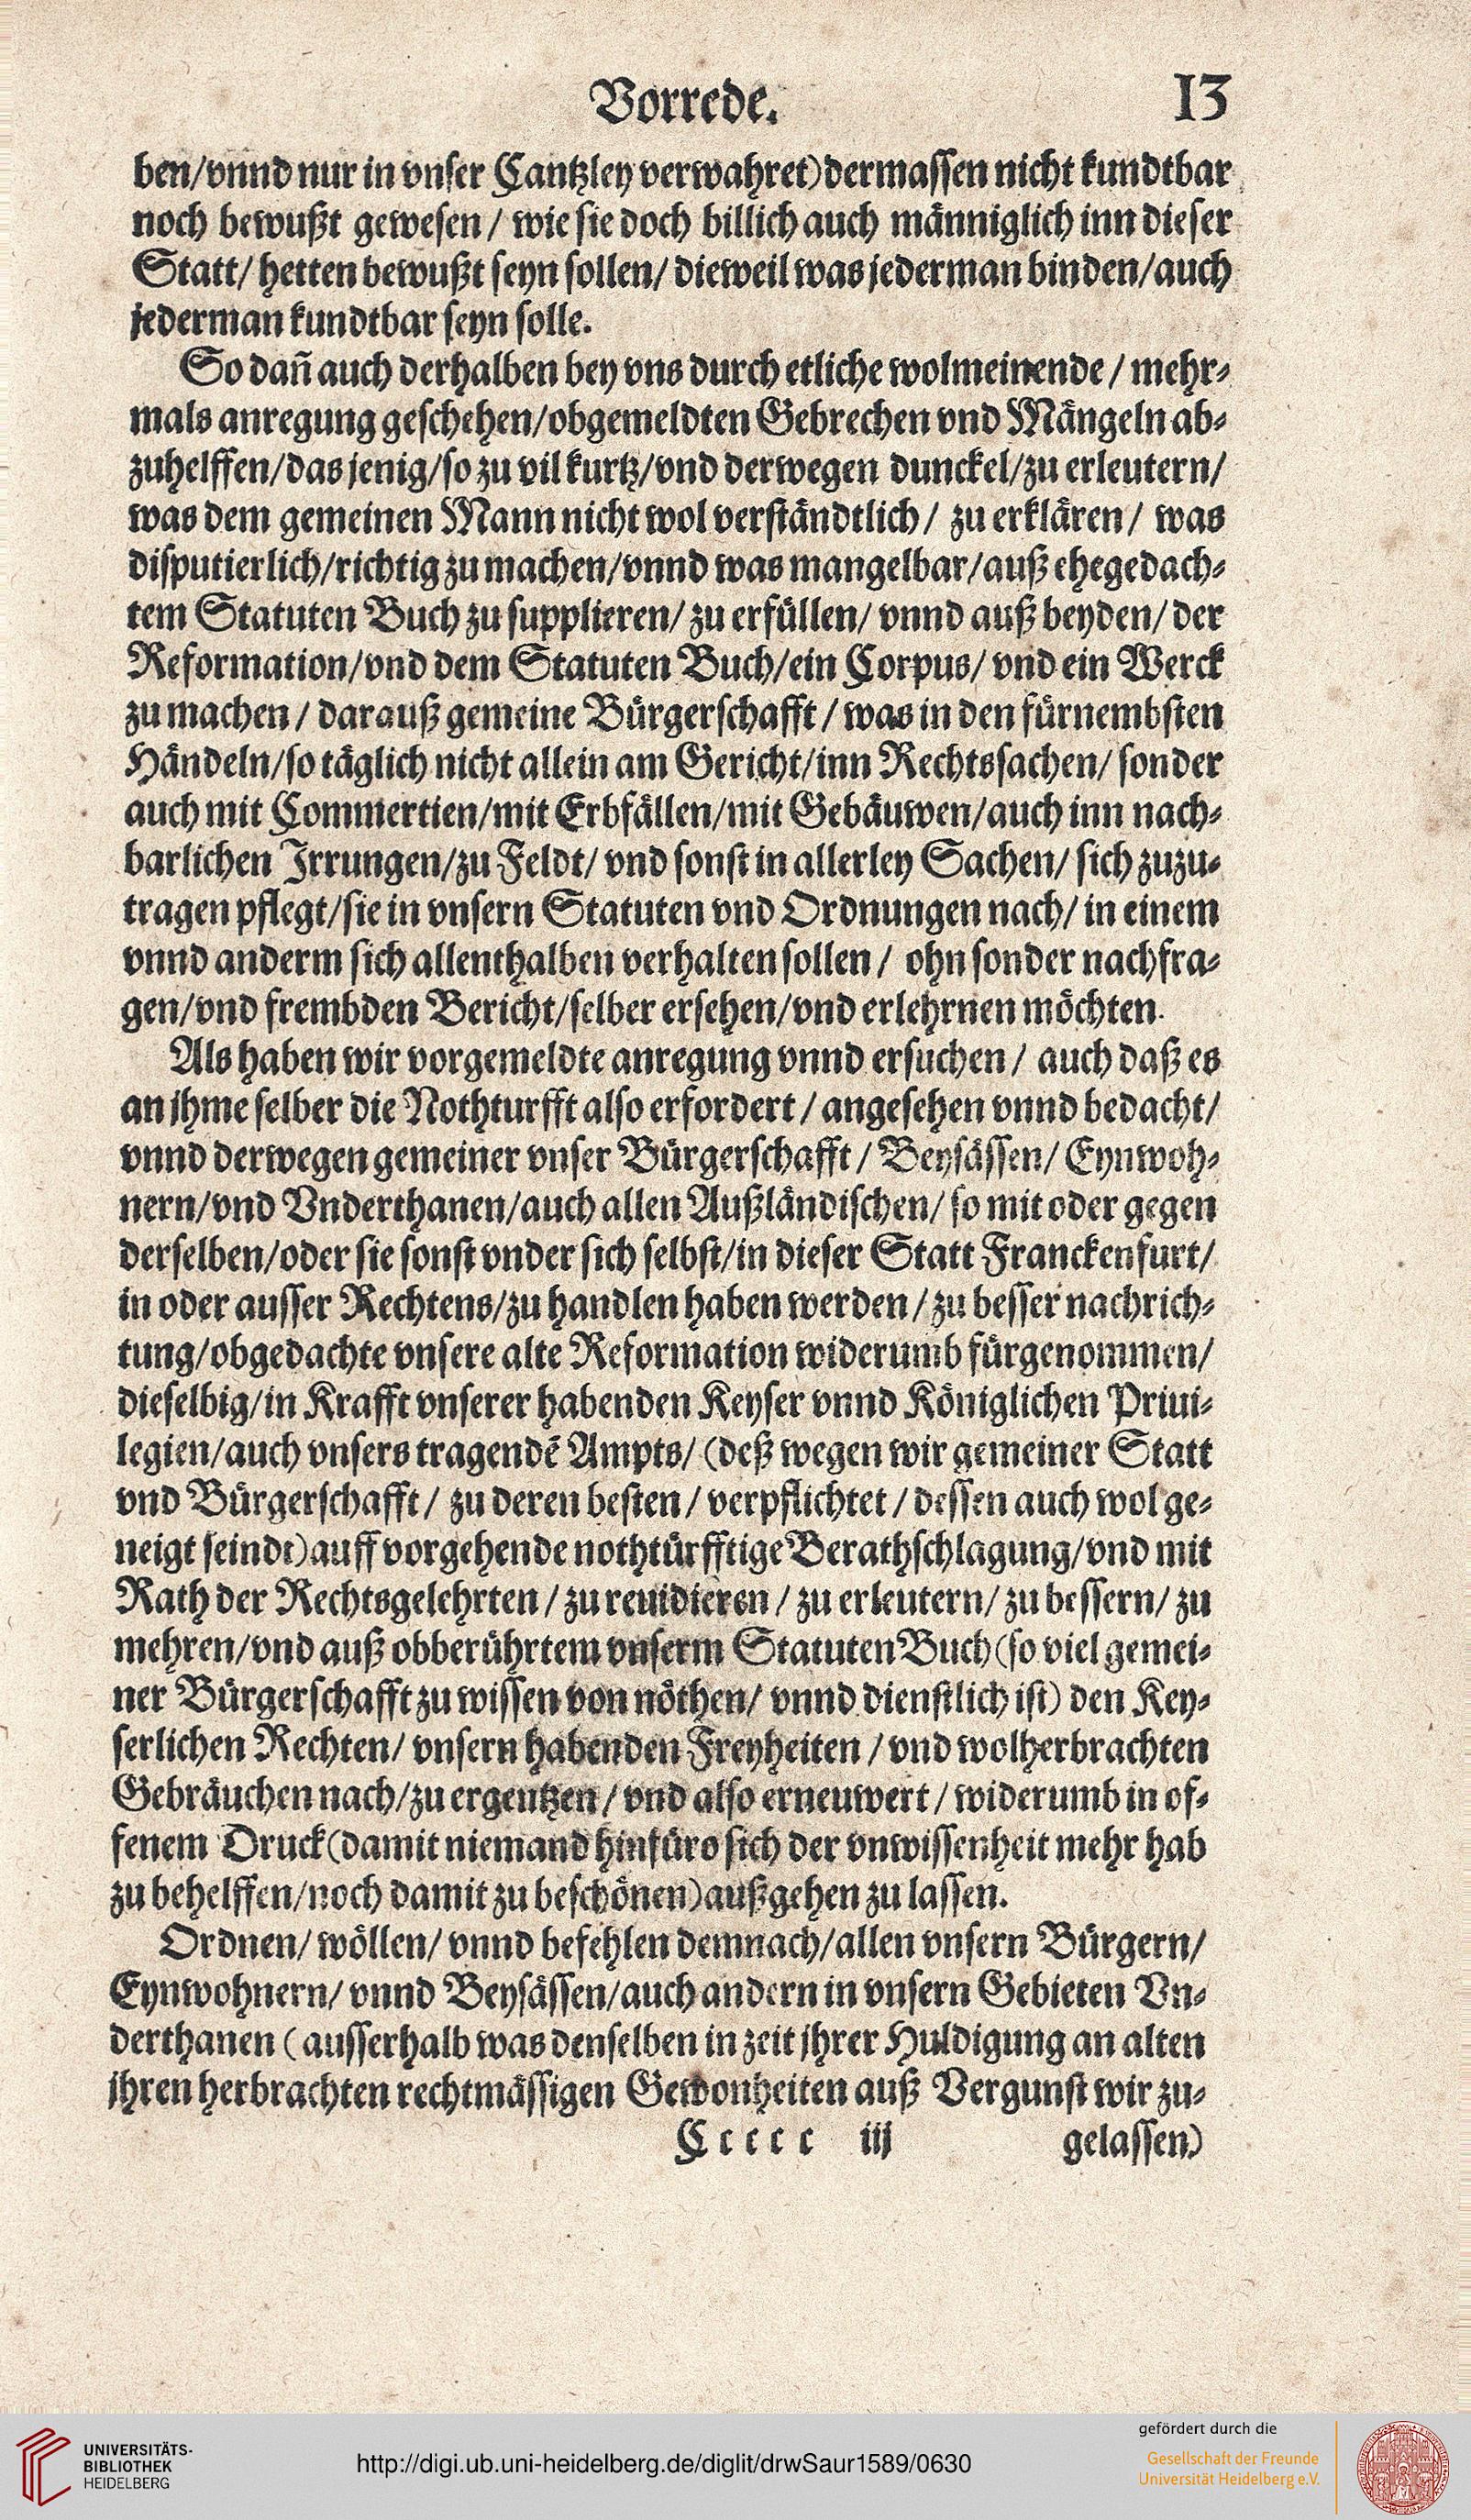 Vorrede. 13
ben/vnnd nur in vnser Cantzley verwahret) dermassen nicht kundtbar
noch bewußt gewesen / wie sie doch billich auch männiglich inn dieser
Statt/ hetten bewußt seyn sollen/ dieweil was jederman binden/auch
jederman kundtbar seyn solle.
So dañ auch derhalben bey vns durch etliche wolmeinende / mehr-
mals anregung geschehen/obgemeldten Gebrechen vnd Mängeln ab-
zuhelffen/das jenig/so zu vil kurtz/vnd derwegen dunckel/zu erleutern/
was dem gemeinen Mann nicht wol verständtlich/ zu erklären/ was
disputierlich/richtig zu machen/vnnd was mangelbar/auß ehegedach-
tem Statuten Buch zu supplieren/ zu erfüllen/ vnnd auß beyden/ der
Reformation/vnd dem Statuten Buch/ein Corpus/ vnd ein Werck
zu machen / darauß gemeine Bürgerschafft / was in den fürnembsten
Händeln/so täglich nicht allein am Gericht/inn Rechtssachen/ sonder
auch mit Commertien/mit Erbfällen/mit Gebäuwen/auch inn nach-
barlichen Irrungen/zu Feldt/ vnd sonst in allerley Sachen/ sich zuzu-
tragen pflegt/sie in vnsern Statuten vnd Ordnungen nach/ in einem
vnnd anderm sich allenthalben verhalten sollen / ohn sonder nachfra-
gen/vnd frembden Bericht/selber ersehen/vnd erlehrnen möchten.
Als haben wir vorgemeldte anregung vnnd ersuchen / auch daß es
an jhme selber die Nothturfft also erfordert / angesehen vnnd bedacht/
vnnd derwegen gemeiner vnser Bürgerschafft / Beysässen/ Eynwoh-
nern/vnd Vnderthanen/auch allen Außländischen/ so mit oder gegen
derselben/oder sie sonst vnder sich selbst/in dieser Statt Franckenfurt/
in oder ausser Rechtens/zu handlen haben werden / zu besser nachrich-
tung/obgedachte vnsere alte Reformation widerumb fürgenommen/
dieselbig/in Krafft vnserer habenden Keyser vnnd Königlichen Priui-
legien/auch vnsers tragendē Ampts/ (deß wegen wir gemeiner Statt
vnd Bürgerschafft/ zu deren besten / verpflichtet / dessen auch wol ge-
neigt seindt) auff vorgehende nothtürfftige Berathschlagung/vnd mit
Rath der Rechtsgelehrten / zu reuidieren / zu erleutern/ zu bessern/ zu
mehren/vnd auß obberührtem vnserm Statuten Buch (so viel gemei-
ner Bürgerschafft zu wissen von nöthen/ vnnd dienstlich ist) den Key-
serlichen Rechten/ vnsern habenden Freyheiten / vnd wolherbrachten
Gebräuchen nach/zu ergentzen / vnd also erneuwert / widerumb in of-
fenem Druck (damit niemand hinfüro sich der vnwissenheit mehr hab
zu behelffen/noch damit zu beschönen) außgehen zu lassen.
Ordnen/ wöllen/ vnnd befehlen demnach/allen vnsern Bürgern/
Eynwohnern/ vnnd Beysässen/auch andern in vnsern Gebieten Vn-
derthanen (ausserhalb was denselben in zeit jhrer Huldigung an alten
jhren herbrachten rechtmässigen Gewonheiten auß Vergunst wir zu-
C c c c c iij gelassen)
UNIVERSITÄTS-
BIBLIOTHEK
HEIDELBERG
http://digi.ub.uni-heidelberg.de/diglit/drwSaur1589/0630
gefördert durch die
Gesellschaft der Freunde
Universität Heidelberg e.V.